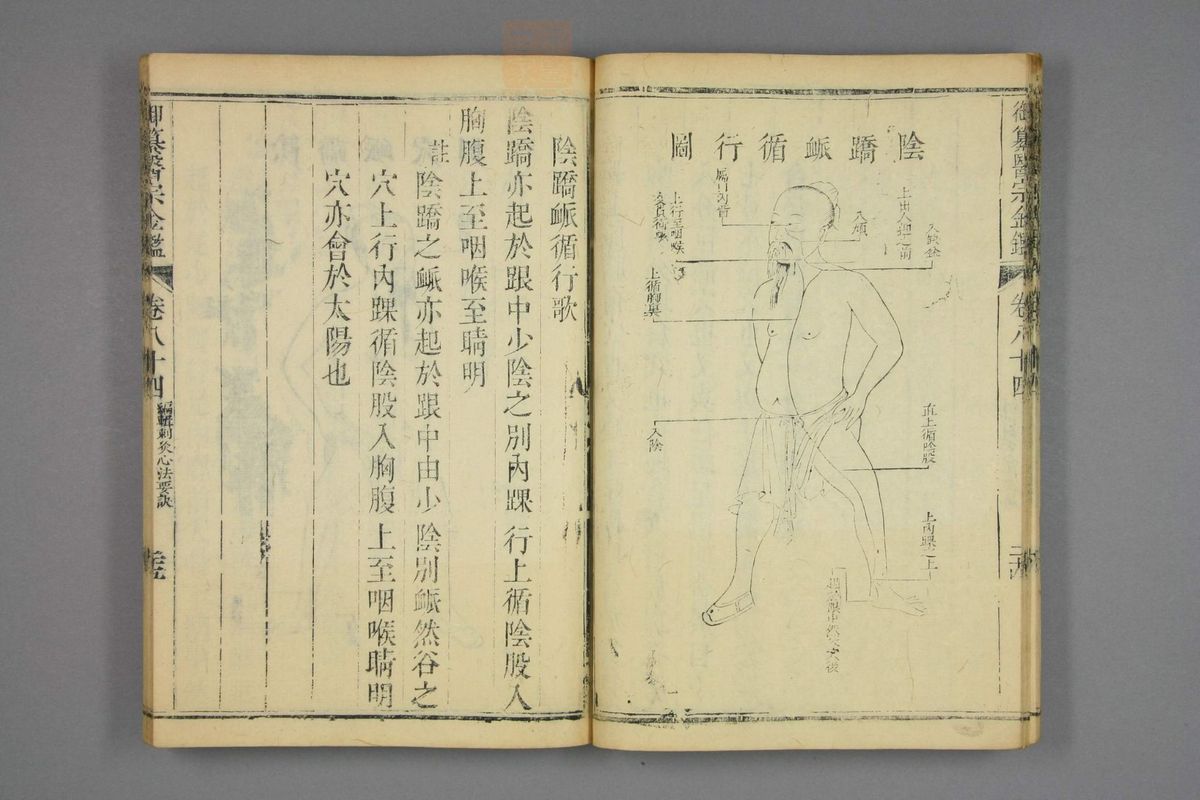 御纂醫宗金鑑
卷八十四
陰蹻䘑循行圖
入鼻
上出人迎之前
入頄
上行至咽喉
交貫衝䘑
上循胸裏
入陰
直上循陰股
上內踝之上
御纂醫宗金鑑
卷八十四
編輯刺灸心法要訣
陰蹻䘑循行歌
陰蹻亦起於跟中少陰之別內踝行上循陰股入
胸腹上至咽喉至睛明
註陰蹻之䘑亦起於跟中由少陰別䘑然谷之
穴上行內踝循陰股入胸腹上至咽喉睛明
穴亦會於太陽也